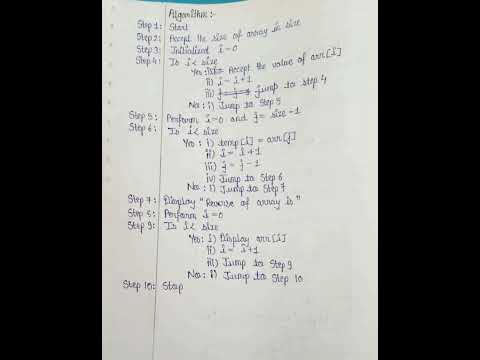 Algorithm :-
Step 1: Start
Step 2: Accept the size of array in size
Step 3: Initialized i=0
Step 4: Is i< size
Yes: i) Accept the value of arr[i]
ii) i = i+1
iii) Jump to step 4
No: i) Jump to Step 5
Step 5: Perform i=0 and j= size -1
Step 6: Is i< size
Yes: i) temp[i] = arr[j]
ii) i = i+1
iii) j = j-1
iv) Jump to Step 6
No: i) Jump to Step 7
Step 7: Display "Reverse of array is"
Step 8: Perform i=0
Step 9: Is i< size
Yes: i) Display arr[i]
ii) i = i+1
iii) Jump to Step 9
No: i) Jump to Step 10
Step 10: Stop